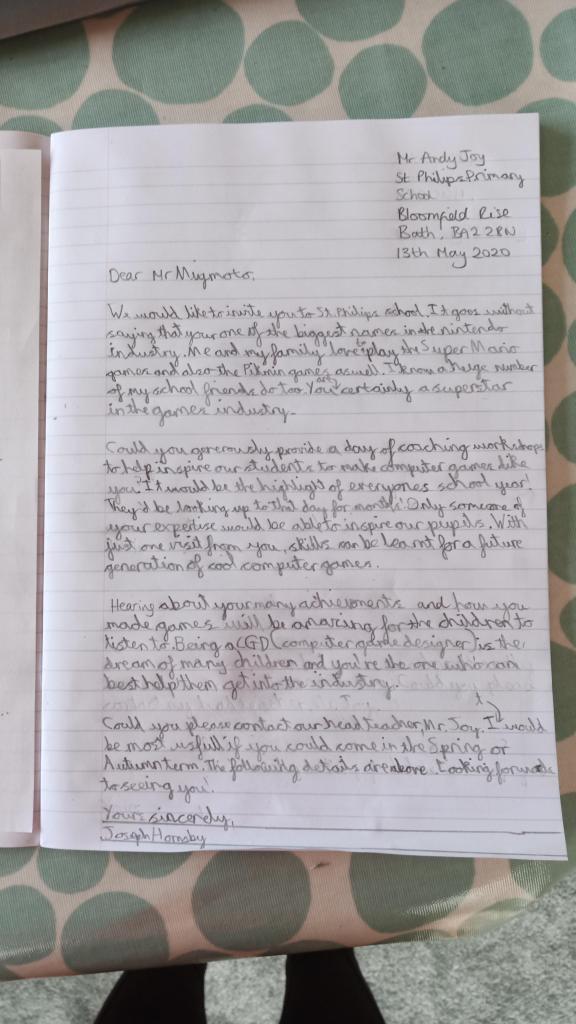 Mr Andy Joy
St Philips Primary
School
Bloomfield Rise
Bath, BA2 2BN
13th May 2020
Dear Mr Miymoto,
We would like to invite you to St Philips school. It goes without
saying that your one of the biggest names in the nintendo
industry. Me and my family love to play the Super Mario
games and also the Pikmin games aswell. I know a huge number
of my school friends do too. You are certainly a superstar
in the games industry.
Could you generously provide a day of coaching workshops
to help inspire our students to make computer games like
you? It would be the highlight of everyones school year!
They'd be looking up to that day for months! Only someone of
your expertise would be able to inspire our pupils. With
just one visit from you, skills can be learnt for a future
generation of cool computer games.
Hearing about your many achievements and how you
made games will be amazing for the children to
listen to. Being a CGD (computer game designer) is the
dream of many children and you're the one who can
best help them get into the industry.
Could you please contact our head teacher, Mr. Joy. It would
be most usfull if you could come in the Spring or
Autumn term. The following details are above. Looking forward
to seeing you!
Yours sincerely,
Joseph Hornsby